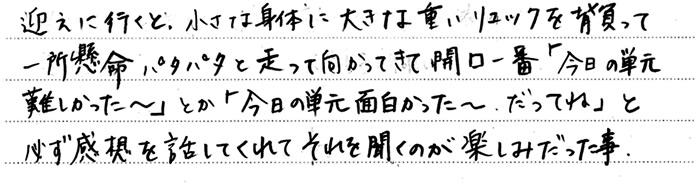 迎えに行くと、小さな身体に大きな重いリュックを背負って
一所懸命パタパタと走って向かってきて開口一番「今日の単元
難しかった〜」とか「今日の単元面白かった〜、だってね」と
必ず感想を話してくれてそれを聞くのが楽しみだった事.